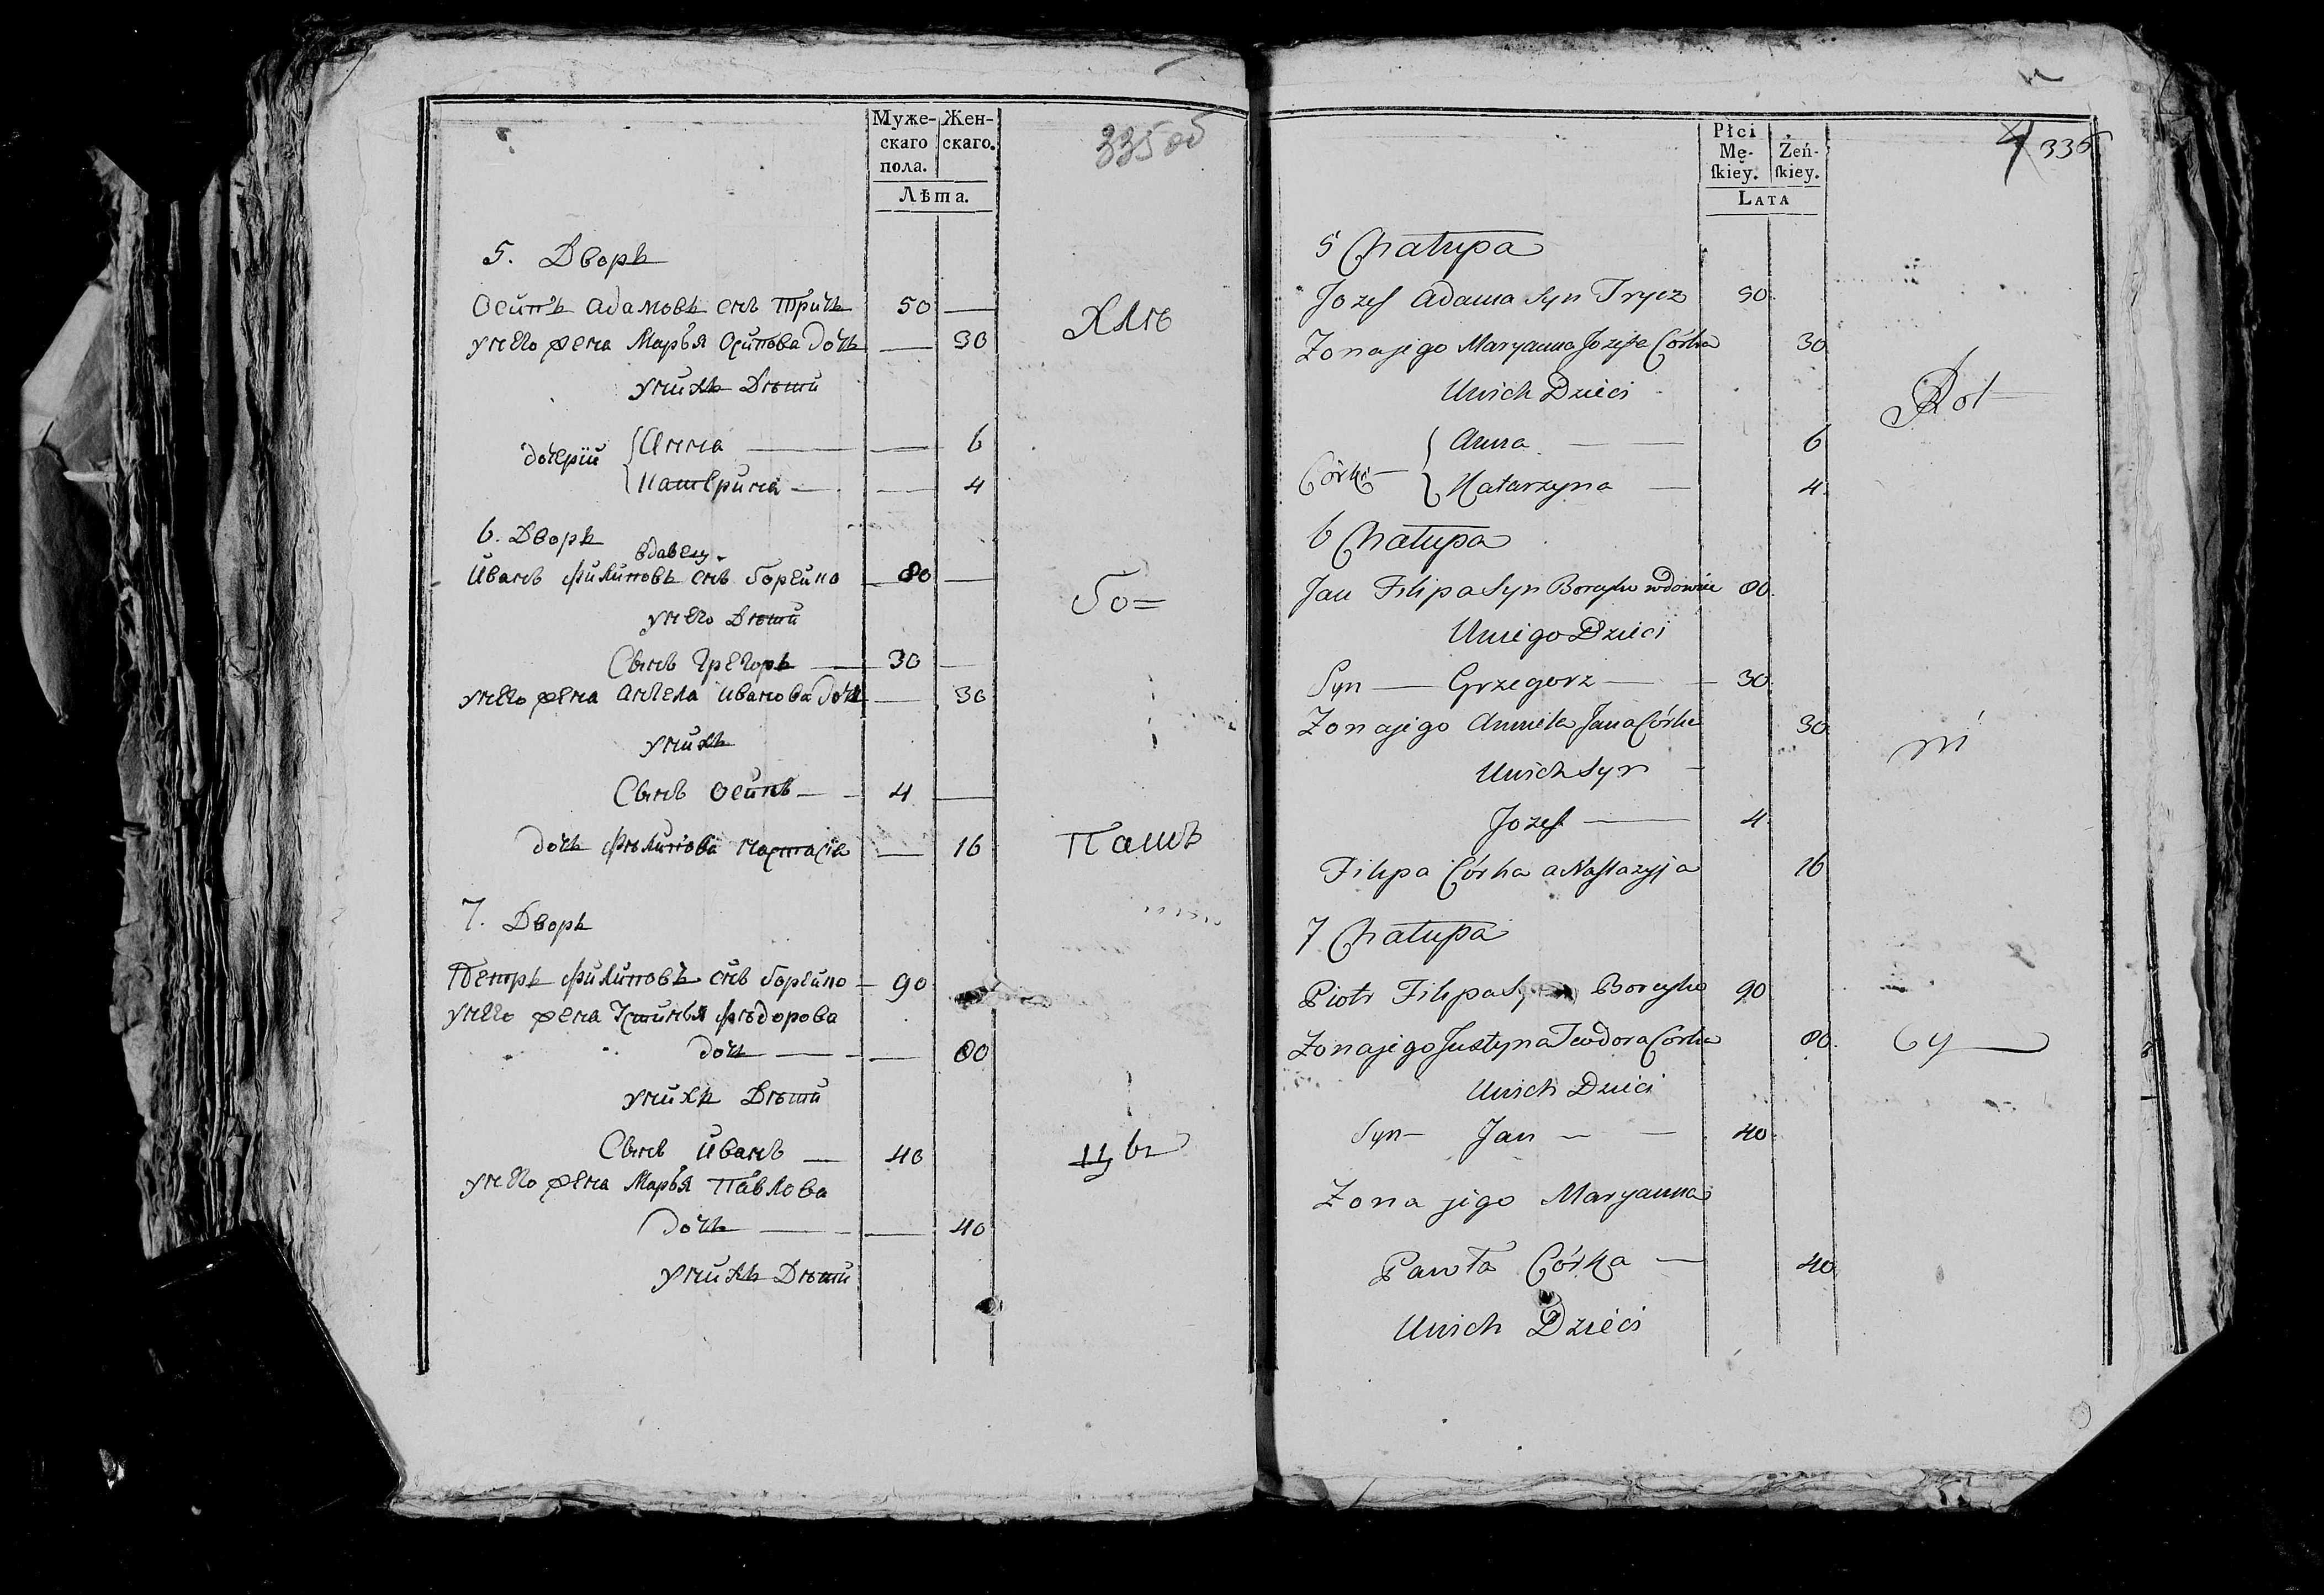 Муже-
скаго
пола.
Жен-
скаго.
Лѣта.
335 об
5. Дворъ
Осипъ Адамовъ снъ Тричъ 50 —
унего жена Марья Осипова дочь — 30
унихъ Дѣти
дочерїи
Анна — — 6
Катерина — — 4
6. Дворъ
вдавец
Иванъ Филиповъ снъ борейко 80 —
унего Дѣти
Сынъ Грегоръ — 30 —
унего жена Ангела Иванова дочь — 30
унихъ
Сынъ Осипъ — 4 —
дочь Филипова Настасїя — 16
7. Дворъ
Петръ Филиповъ снъ борейко — 90
унего жена Устинья Фѣдорова
дочь — — 80
унихъ Дѣти
Сынъ Иванъ — 40
унего жена Марья Павлова
дочь — — 40
унихъ Дѣти
бо=
Пашъ
Płci
Mę-
ſkiey.
Żeń-
ſkiey.
LATA
4
336
5 Chałupa
Jozef Adama Syn Trycz 50
Zona jego Maryanna Jozefa Córka 30
Unich Dzieci
Córki
Anna — — 6
Katarzyna — 4
6 Chałupa
Jan Filipa Syn Boreyko wdowiec 80
Uniego Dzieci
Syn — Grzegorz — 30
Zona jego Anniela Jana Córka 30
Unich Syn
Jozef — 4
Filipa Córka a Nastazyja 16
7 Chałupa
Piotr Filipa Syn Boreyko 90
Zona jego Justyna Teodora Córka 80
Unich Dzieci
Syn — Jan — — 40
Zona jego Maryanna
Pawła Córka — 40
Unich Dzieci